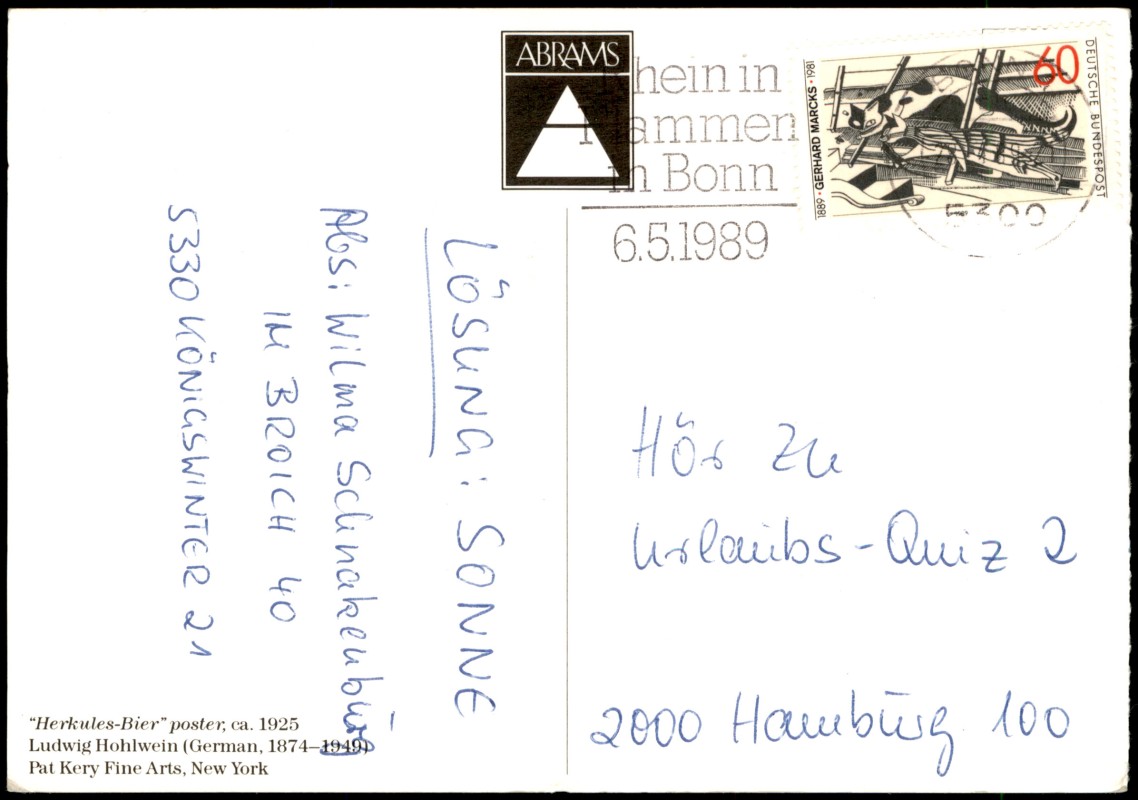 ABRAMS
Rhein in
Flammen
in Bonn
6.5.1989
60
DEUTSCHE BUNDESPOST
1889 · GERHARD MARCKS · 1981
5300
LÖSUNG: SONNE
Abs: Wilma Schnakenburg
IM BROICH 40
5330 KÖNIGSWINTER 21
Hör Zu
Urlaubs-Quiz 2
2000 Hamburg 100
"Herkules-Bier" poster, ca. 1925
Ludwig Hohlwein (German, 1874–1949)
Pat Kery Fine Arts, New York